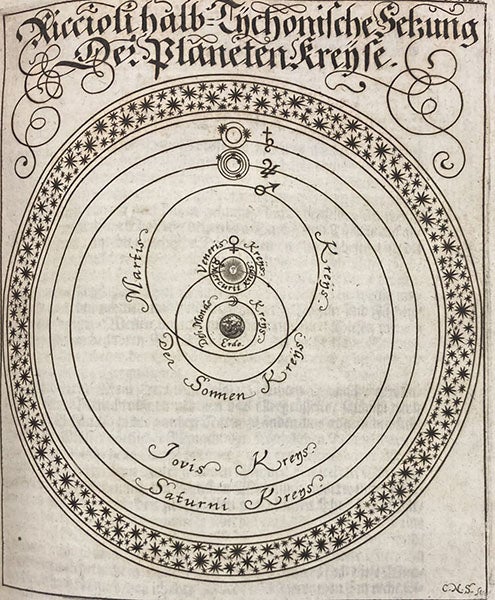 Riccioli halb-Tychonische Setzung
Der Planeten Kreyse.
♄
♃
♂
Martis Kreys.
♀
Veneris Kreys.
Mercurii Kreys
☽
Deß Monds Kreys
Erde.
Der Sonnen Kreys
Jovis Kreys.
Saturni Kreys
C.N.S. sc.